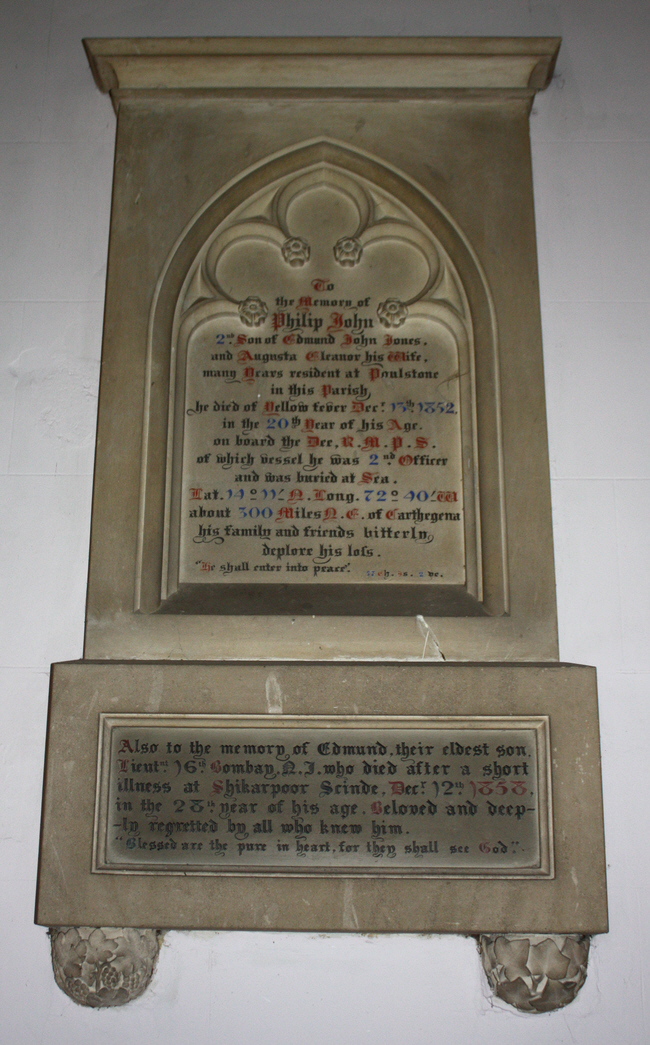 To
the Memory of
Philip John
2nd Son of Edmund John Jones.
and Augusta Eleanor his Wife.
many Years resident at Poulstone
in this Parish,
he died of Yellow fever Decr. 13th 1852.
in the 20th Year of his Age.
on board the Dee, R.M.P.S.
of which vessel he was 2nd Officer
and was buried at Sea.
Lat. 14° 11' N. Long. 72° 40' W
about 300 Miles N.E. of Carthegena
his family and friends bitterly,
deplore his loss.
"He shall enter into peace".
Also to the memory of Edmund, their eldest son,
Lieutnt 16th Bombay. N.I. who died after a short
illness at Shikarpoor Scinde, Decr. 12th 1858.
in the 28th year of his age. Beloved and deep-
-ly regretted by all who knew him.
"Blessed are the pure in heart, for they shall see God".